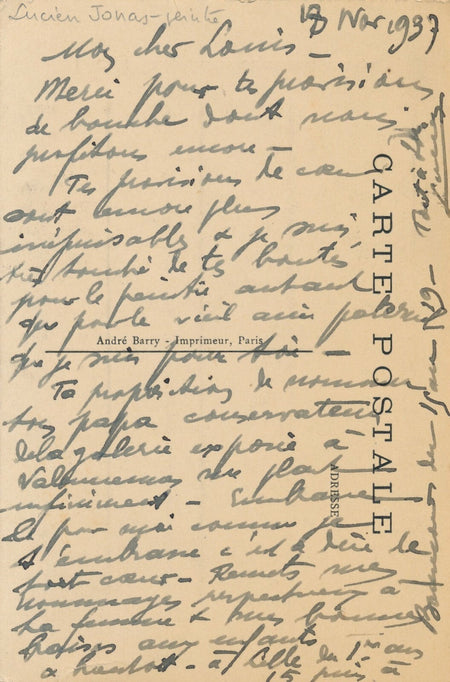 Lucien Jonas - peintre
18 Nov 1937
Mon cher Louis -
Merci pour tes provisions
de bouche dont nous
profitons encore -
Tes provisions de cœur
sont encore plus
inépuisables & je suis
très touché de tes bontés
pour le peintre autant
que pour le vieil ami paternel
que je suis pour toi -
Ta proposition de nommer
ton papa conservateur
de la galerie exposée à
Valenciennes me plait
infiniment - Embrasse
le pour moi comme je
t'embrasse c'est à dire de
tout cœur - Remets mes
hommages respectueux à
ta femme & mes bonnes
baises aux enfants
a bientôt - à Lille du 1er au
15 puis à
du 15 au 29 -
CARTE POSTALE
ADRESSE
André Barry - Imprimeur, Paris